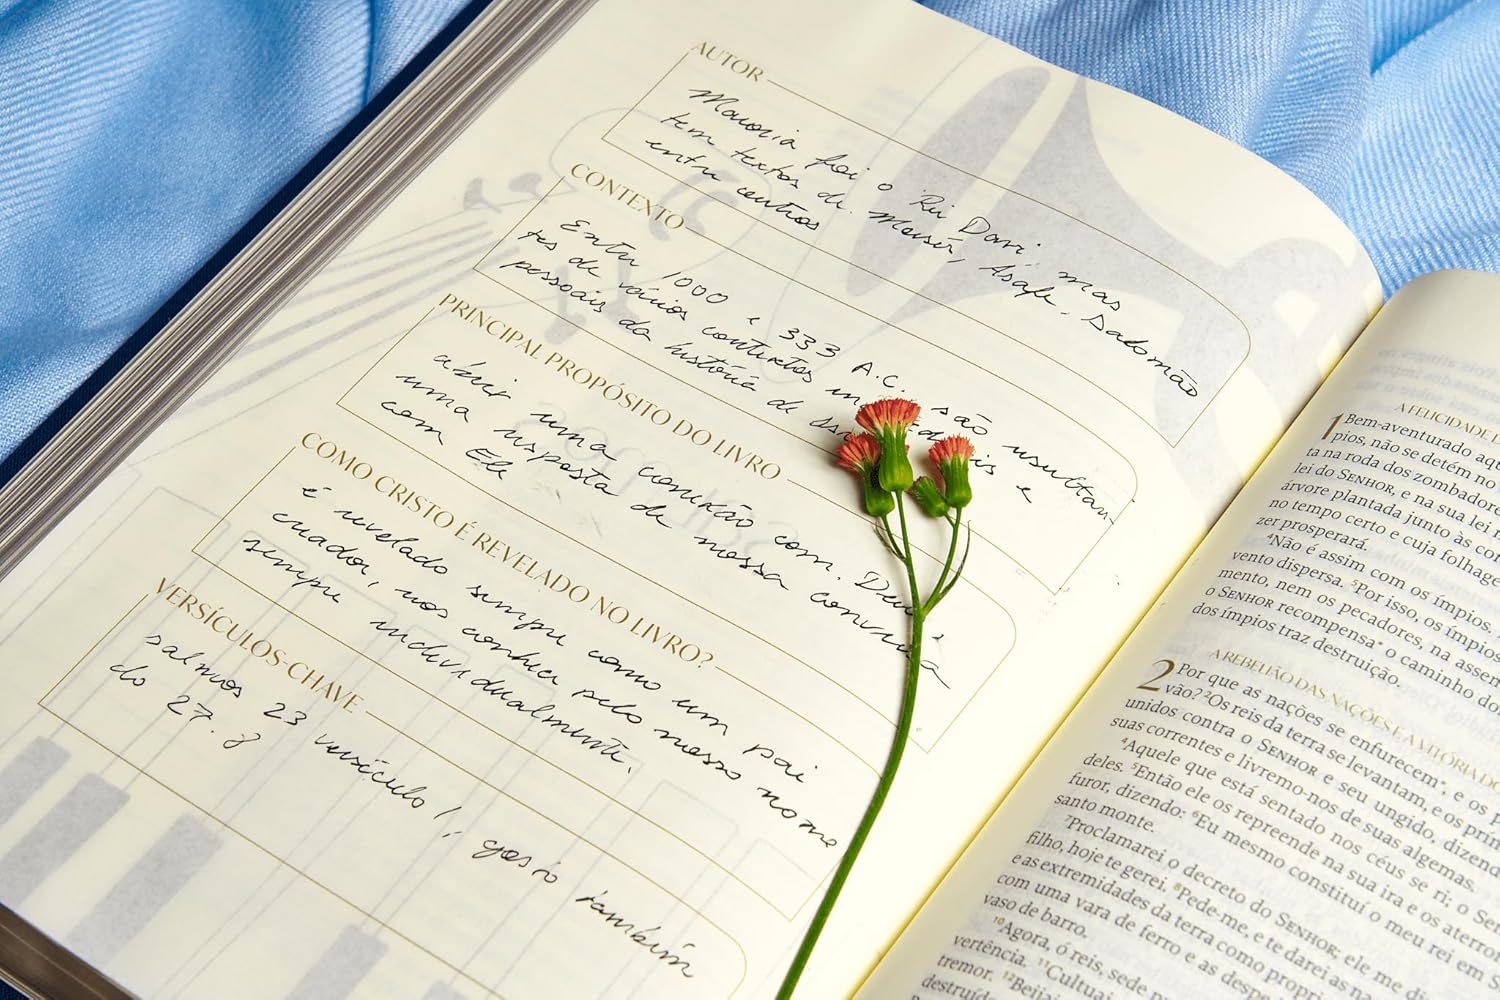 AUTOR
Maioria foi o Rei Davi. mas
tem textos de Moisés, Asafe. Salomão
entre outros
CONTEXTO
Entre 1000 e 333 A.C. são resultan
tes de vários contextos e
pessoais da história de
PRINCIPAL PROPÓSITO DO LIVRO
uma conexão com. Deus e
uma resposta de nossa conversa
com Ele
COMO CRISTO É REVELADO NO LIVRO?
é revelado sempre como um pai
criador, nos conhece pelo nosso nome
sempre individualmente.
VERSÍCULOS-CHAVE
salmos 23 versículo 1, gosto também
do 27.
A FELICIDADE
1 Bem-aventurado
pios, não se detém no
ta na roda dos zombadore
lei do SENHOR, e na sua lei
árvore plantada junto às
no tempo certo e cuja folhage
zer prosperará.
4Não é assim com os ímpios,
vento dispersa. 5Por isso, os ímpios
mento, nem os pecadores, na assem
o SENHOR recompensa o caminho do
dos ímpios traz destruição.
A REBELIÃO DAS NAÇÕES E A VITÓRIA DO
2 Por que as nações se enfurecem, e os p
vão? 2Os reis da terra se levantam, e os prín
unidos contra o SENHOR e seu ungido, dizend
suas correntes e livremo-nos de suas algemas.
4Aquele que está sentado nos céus se ri; o Sen
deles. 5Então ele os repreende na sua ira e os aterror
furor, dizendo: 6Eu mesmo constituí o meu rei em S
santo monte.
7Proclamarei o decreto do SENHOR; ele me di
filho, hoje te gerei. 8Pede-me, e te darei as na
e as extremidades da terra como proprie
com uma vara de ferro e as despe
vaso de barro.
10Agora, ó reis, sede
vertência. 11Cultuai
tremor. 12Beijai
destruído